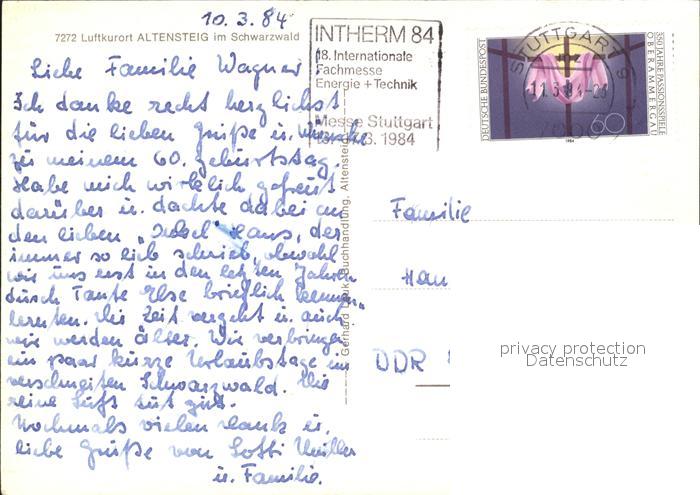 10. 3. 84
7272 Luftkurort ALTENSTEIG im Schwarzwald
Liebe Familie Wagner
Ich danke recht herzlichst
für die lieben Grüße u. Wünsche
zu meinem 60. Geburtstag.
Habe mich wirklich gefreut
darüber u. dachte dabei an
den lieben " Hans, der
immer so lieb schrieb, obwohl
wir uns erst in den letzten Jahren
durch Tante Else brieflich kennen-
lernten. Die Zeit vergeht u. auch
wir werden älter. Wir verbringen
ein paar kurze Urlaubstage im
verschneiten Schwarzwald. Die
reine Luft tut gut.
Nochmals vielen Dank u.
liebe Grüße von Lotti
u. Familie.
Gerhard Buchhandlung, Altensteig
INTHERM 84
18. Internationale
Fachmesse
Energie + Technik
Messe Stuttgart
3. 1984
STUTTGART
11.3.84-2
7000
DEUTSCHE BUNDESPOST
350 JAHRE PASSIONSSPIELE
OBERAMMERGAU
60
1984
Familie
Han
DDR
privacy protection
Datenschutz